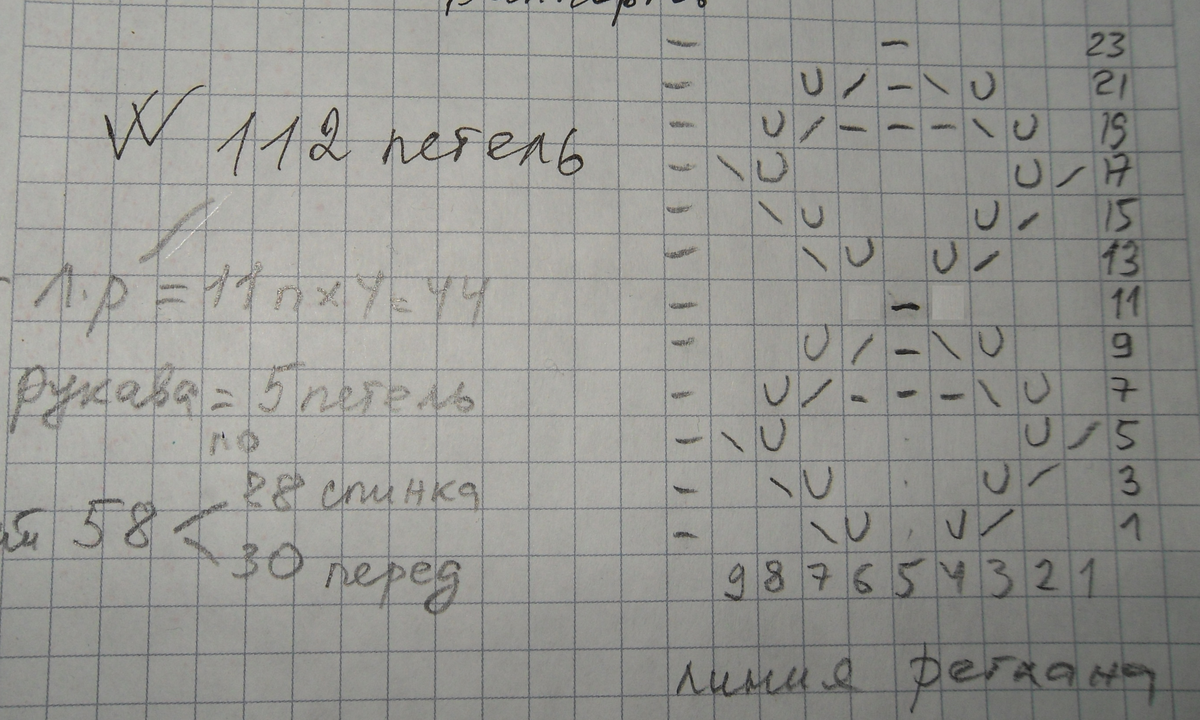 112 петель
л.р = 11п х 4 = 44
рукава = 5 петель
по
58
28 спинка
30 перед
23
21
19
17
15
13
11
9
7
5
3
1
9 8 7 6 5 4 3 2 1
линия реглана